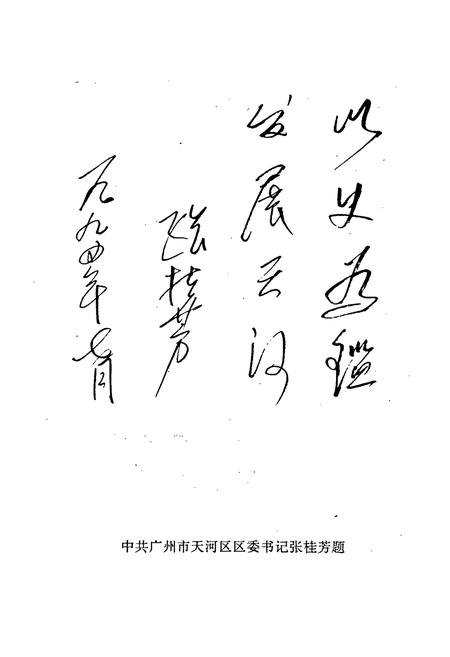 以史为鉴
发展天河
张桂芳
一九九四年七月
中共广州市天河区区委书记张桂芳题